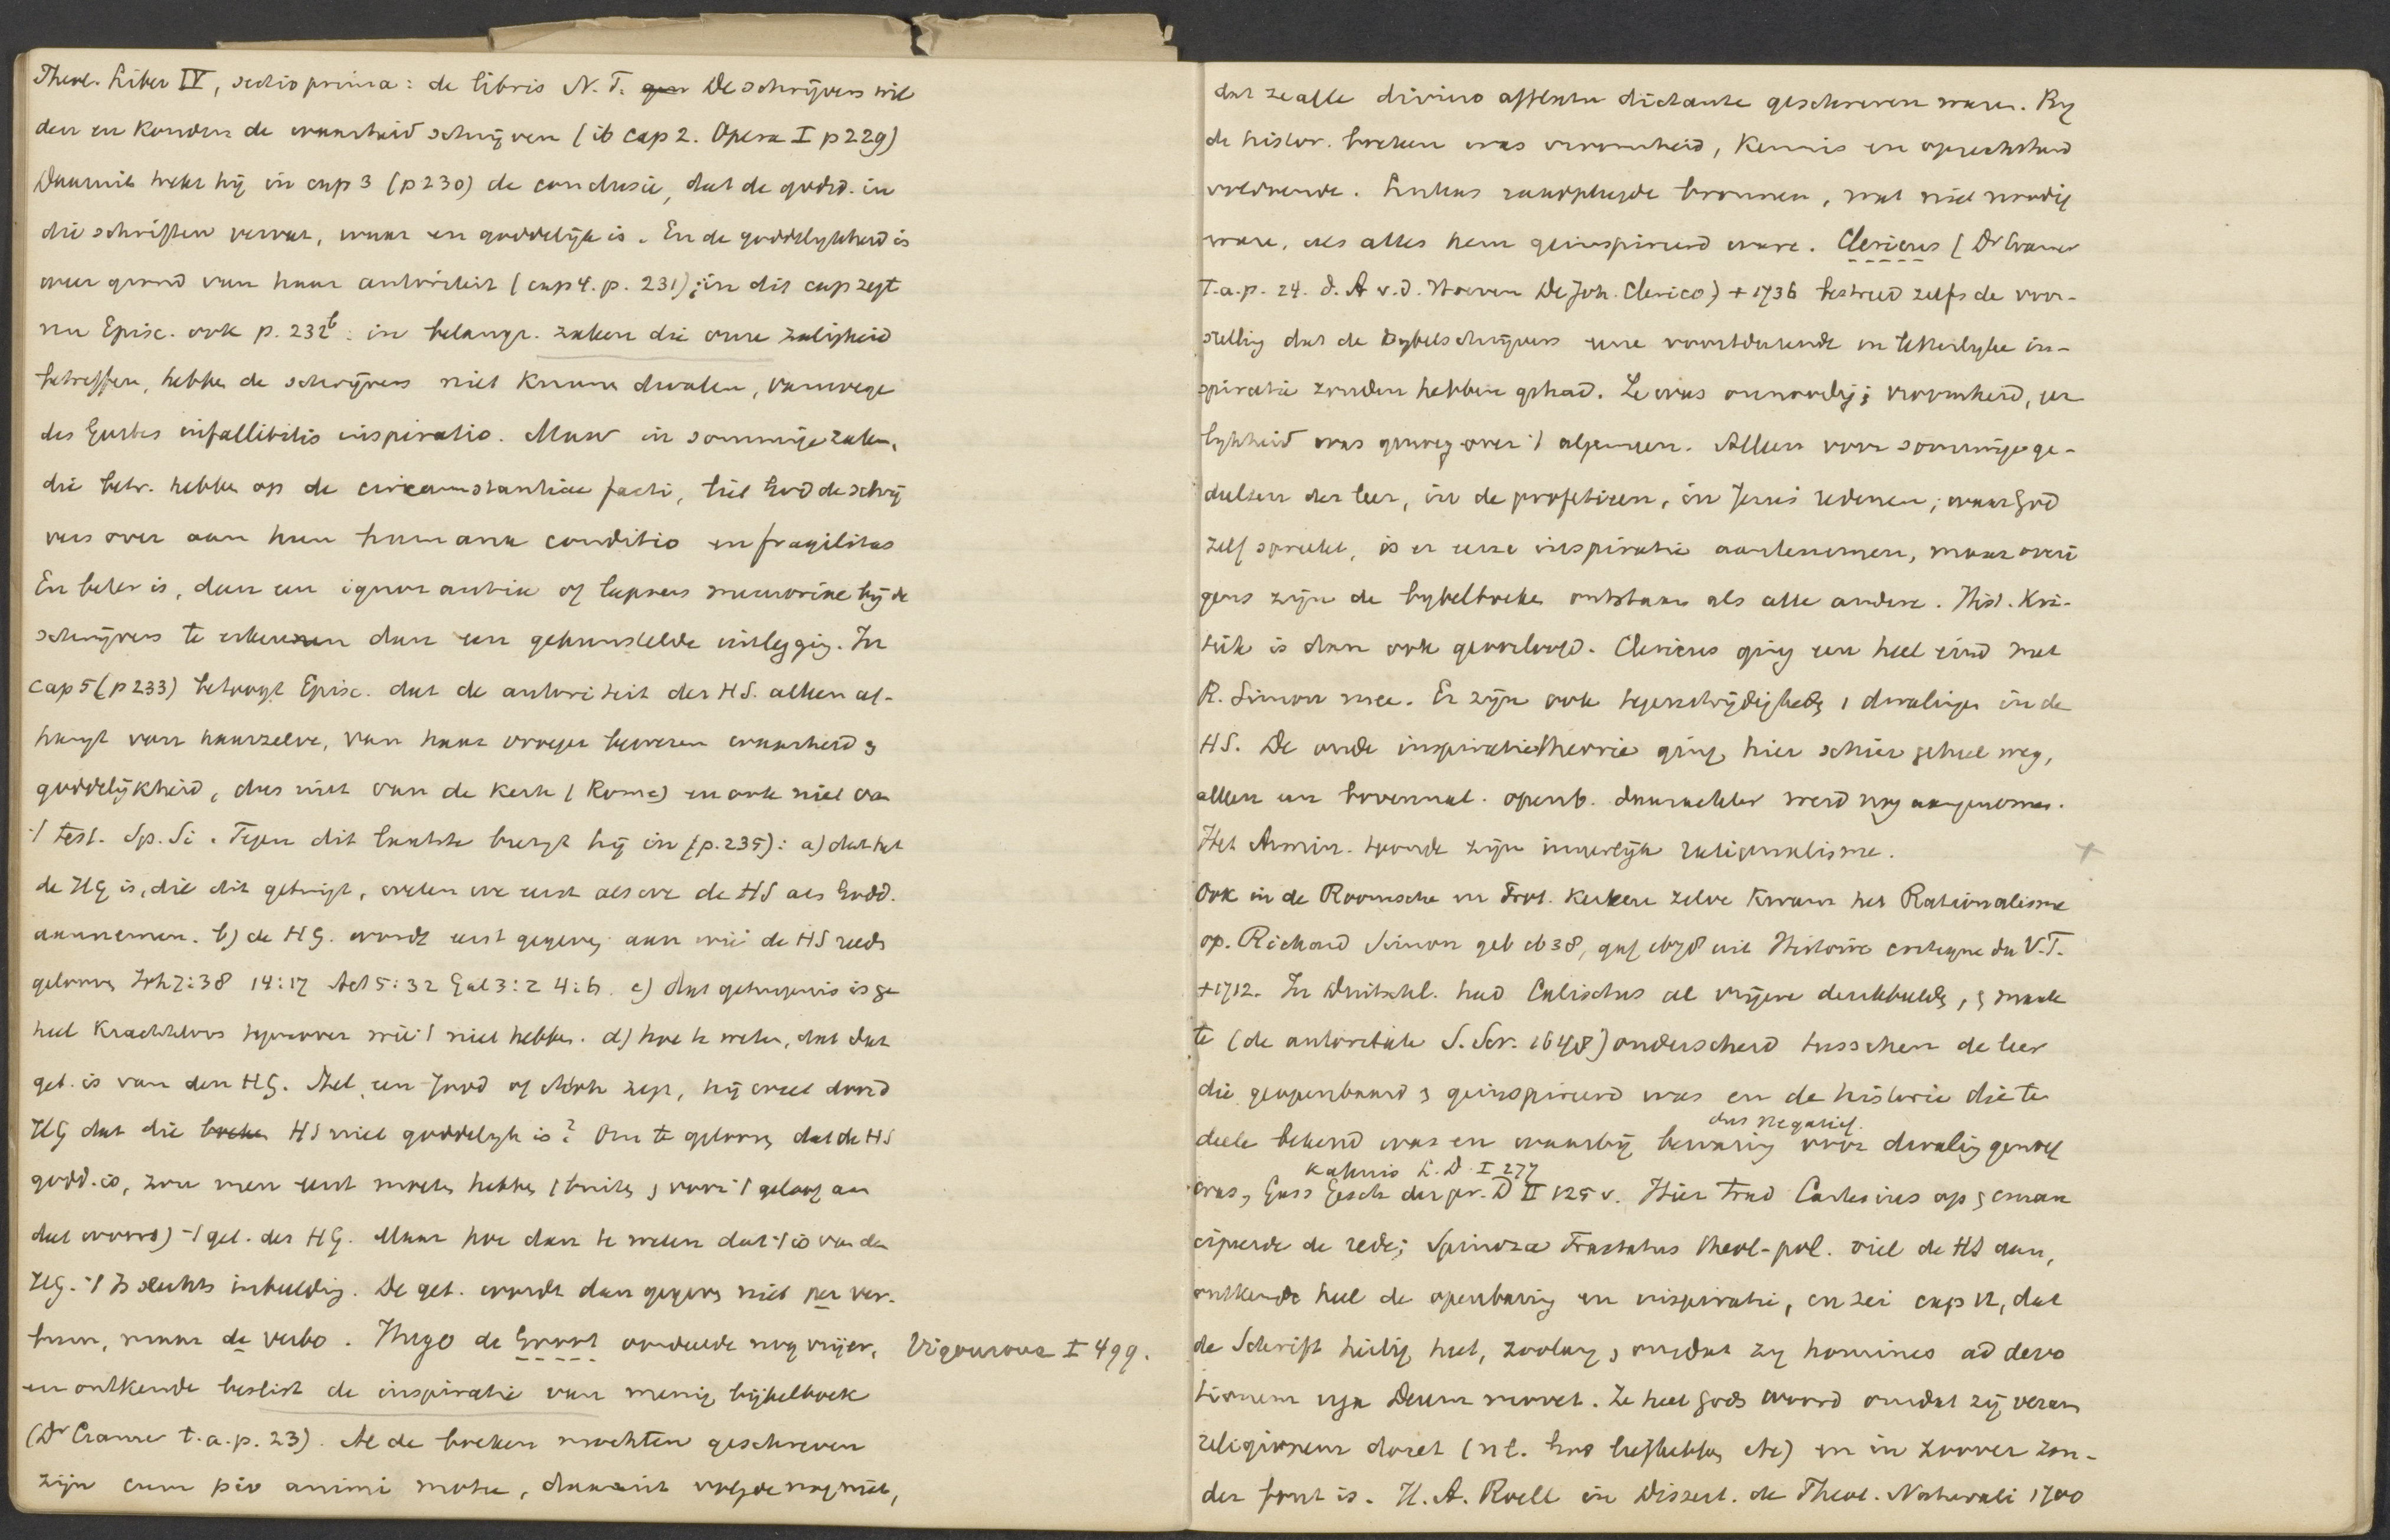 Theol. Liber IV, sectio prima: de libris N.T. De schrijvers wil
den en konden de waarheid schrijven (ib cap 2. Opera I p 229)
Daaruit trekt hij in cap 3 (p 230) de conclusie, dat de godsd. in
die schriften vervat, waar en goddelijk is. En de goddelykheid is
weer grond van haar autoriteit (cap 4. p. 231); in dit cap zegt
nu Episc. ook p. 232b: in belangr. zaken die onze zaligheid
betreffen, hebben de schrijvers niet kunnen dwalen, vanwege
des Geestes infallibilis inspiratio. Maar in sommige zaken,
die betr. hebben op de circumstantiae facti, liet God de schrij
vers over aan hun humana conditio en fragilitas
En beter is, dan een ignorantia of lapsus memoriae bij de
schrijvers te erkennen dan een gekunstelde uitlegging. In
cap 5 (p 233) betoogt Episc. dat de autoriteit der HS. alleen af-
hangt van haarzelve, van haar vroeger bewezen waarheid &
goddelijkheid, dus niet van de kerk (Rome) en ook niet van
't test. Sp. Si. Tegen dit laatste brengt hij in (p. 235): a) dat het
de HG is, die dit getuigt, weten we eerst als we de HS als Godd.
aannemen. b) de HG. wordt eerst gegeven aan wie de HS reeds
gelooven Joh 7:38 14:17 Act 5:32 Gal 3:2 4:6. c) dat getuigenis is ge
heel krachteloos tegenover wie 't niet hebben. d) hoe te weten, dat dat
get. is van den HG. Stel, een Jood of zegt, hij weet door d
HG dat die HS niet goddelyk is? Om te gelooven dat de HS
godd. is, zou men eerst moeten hebben (buiten & voor 't geloof aan
dat woord) 't get. der HG. Maar hoe dan te weten dat 't is van den
HG. 't Is slechts inbeelding. De get. wordt dan gegeven niet per ver-
bum, maar de verbo. Hugo de Groot oordeelde nog vrijer, Vigouroux I 499.
en ontkende beslist de inspiratie van menig bijbelboek
(Dr Cramer t.a.p. 23). Al de boeken mochten geschreven
zijn cum pio animi motu, daaruit volgde nog niet,
dat ze alle divino afflatu dictante geschreven waren. By
de histor. boeken was vroomheid, kennis en oprechtheid
voldoende. Lukas raadpleegde bronnen, wat niet noodig
ware, als alles hem geinspireerd ware. Clericus (Dr Cramer
T.a.p. 24. d. A v.d. Hoeven De Joh. Clerico) +1736 bestreed zelfs de voor-
stelling dat de Bybelschrijvers eene voortdurende en letterlyke in-
spiratie zouden hebben gehad. Ze was onnoodig; vroomheid, eer
lykheid was genoeg over 't algemeen. Alleen voor sommige ge-
deelten der leer, in de profetieen, in Jezus' redenen, waar God
zelf spreekt, is er eene inspiratie aantenemen, maar overi
gens zijn de bybelboeken ontstaan als alle andere. Hist. Kri-
tiek is dan ook geoorloofd. Clericus ging een heel eind met
R. Simon mee. Er zijn ook tegenstrijdigheden, dwalingen in de
HS. De oude inspiratietheorie ging hier schier geheel weg,
alleen een bovennat. openb. daarachter werd nog aangenomen.
Het Armin. toonde zijn innerlijk rationalisme.
Ook in de Roomsche en Prot. kerken zelve kwam het Rationalisme
op. Richard Simon geb 1638, gaf 1678 uit Histoire critique du V.T.
+1712. In Duitschl. had Calixtus al vrijere denkbeelden, & maak
te (de autoritate S. Scr. 1648) onderscheid tusschen de leer
die geopenbaard & geinspireerd was en de historie die ten
deele bekend was en waarbij bewaring voor dwaling genoeg
dus negatief.
was, Gass Gesch der pr. D II 125 v. Hier trad Cartesius op & eman
Kahnis L. D. I 277
cipeerde de rede; Spinoza Tractatus theol-pol. viel de HS aan,
ontkende heel de openbaring en inspiratie, en zei cap 12, dat
de Schrift heilig heet, zoolang & omdat zij homines ad devo
tionem erga Deum movet. Ze heet Gods woord omdat zij veram
religionem docet (nl. God liefhebben etc) en in zoover zon-
der fout is. H. A. Roëll in Dissert. de Theol. Naturali 1700